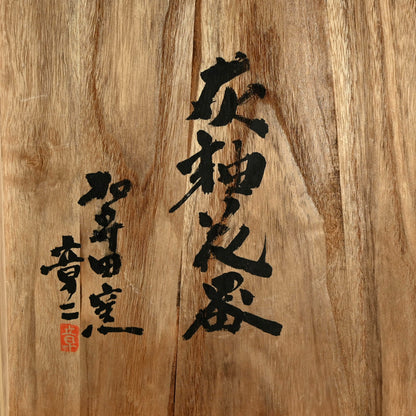 灰釉花器
加守田窯
章二
章